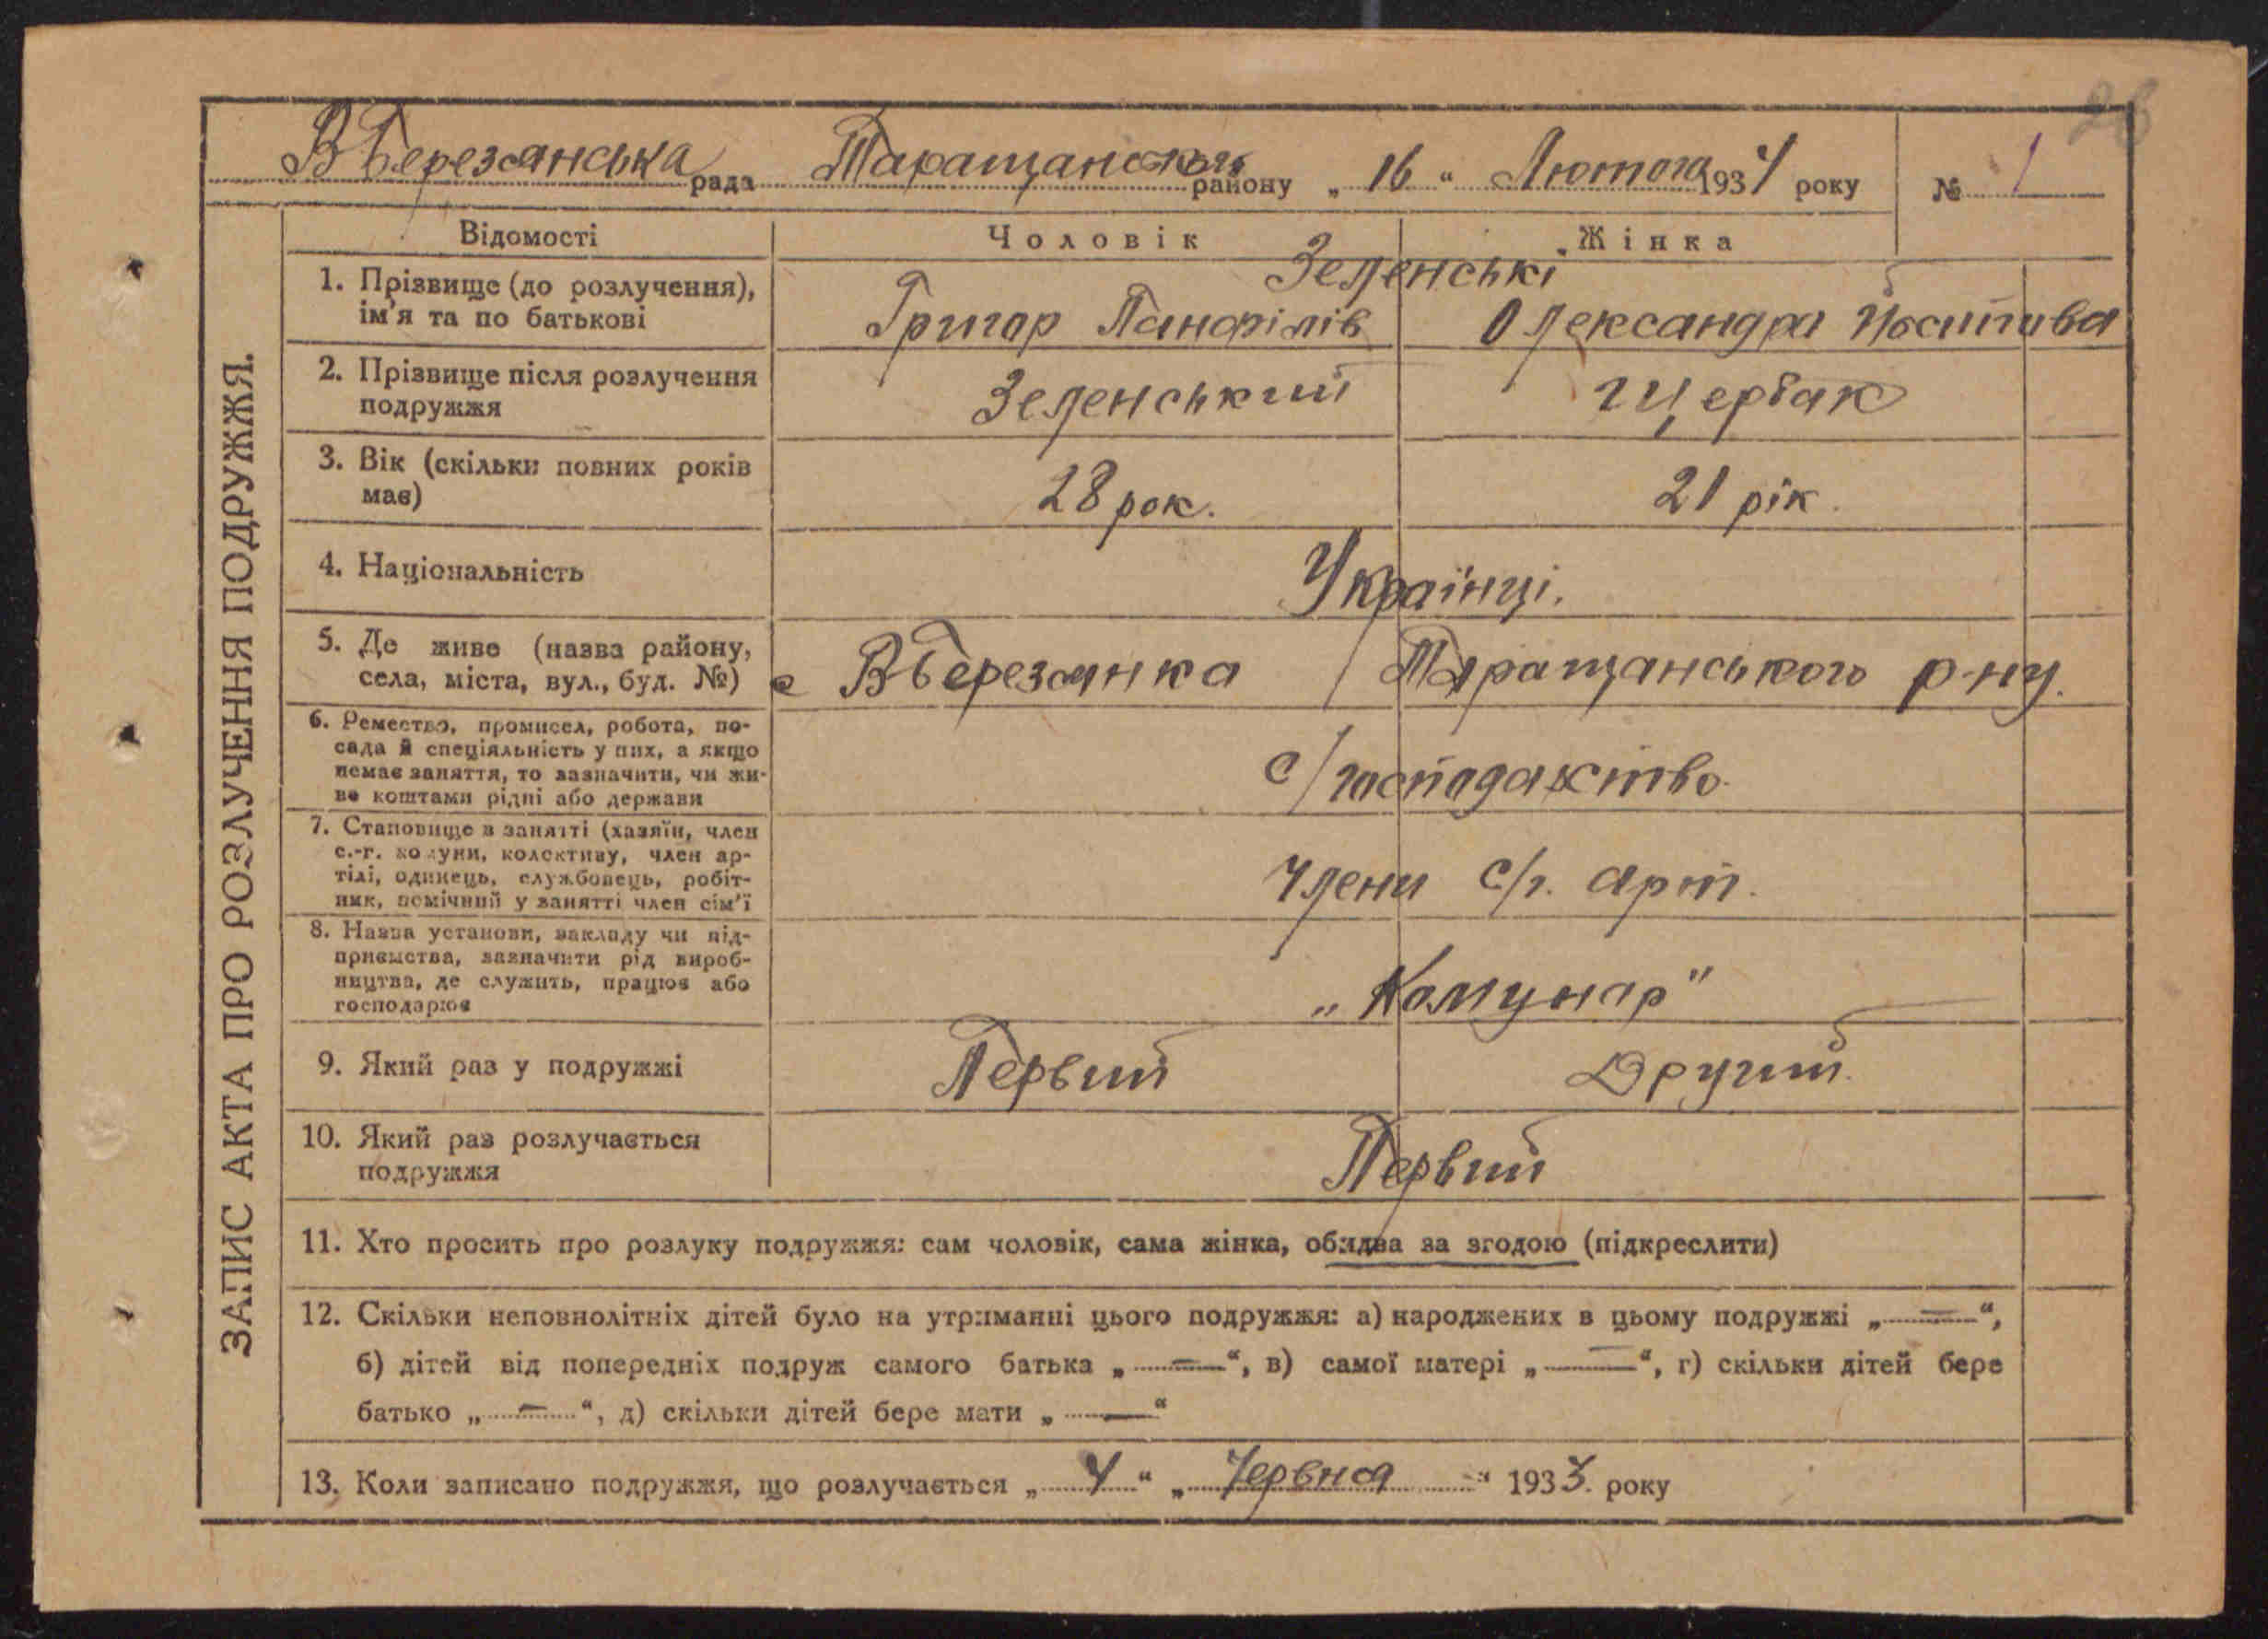 28
В Березанська рада Таращанського району „ 16 “ Лютого 1934 року № 1
ЗАПИС АКТА ПРО РОЗЛУЧЕННЯ ПОДРУЖЖЯ.
Відомості Чоловік Жінка
Зеленські
1. Прізвище (до розлучення), ім'я та по батькові Григор Панфілів Олександра
2. Прізвище після розлучення подружжя Зеленський Щербак
3. Вік (скільки повних років має) 28 рок. 21 рік.
4. Національність Українці.
5. Де живе (назва району, села, міста, вул., буд. №) с В Березанка / Таращанського р-ну.
6. Ремество, промисел, робота, посада й спеціяльність у них, а якщо немає заняття, то зазначити, чи живе коштами рідні або держави с/господарство.
7. Становище в занятті (хазяїн, член с.-г. комуни, колективу, член артілі, одинець, службовець, робітник, помічний у занятті член сім'ї Члени с/г. арт.
8. Назва установи, закладу чи підприємства, зазначити рід виробництва, де служить, працює або господарює „Комунар"
9. Який раз у подружжі Первий Другий.
10. Який раз розлучається подружжя Первий
11. Хто просить про розлуку подружжя: сам чоловік, сама жінка, обидва за згодою (підкреслити)
12. Скільки неповнолітніх дітей було на утриманні цього подружжя: а) народжених в цьому подружжі „ — “,
б) дітей від попередніх подруж самого батька „ — “, в) самої матері „ — “, г) скільки дітей бере
батько „ — “, д) скільки дітей бере мати „ — “
13. Коли записано подружжя, що розлучається „ 4 “ „ Червня “ 1933. року